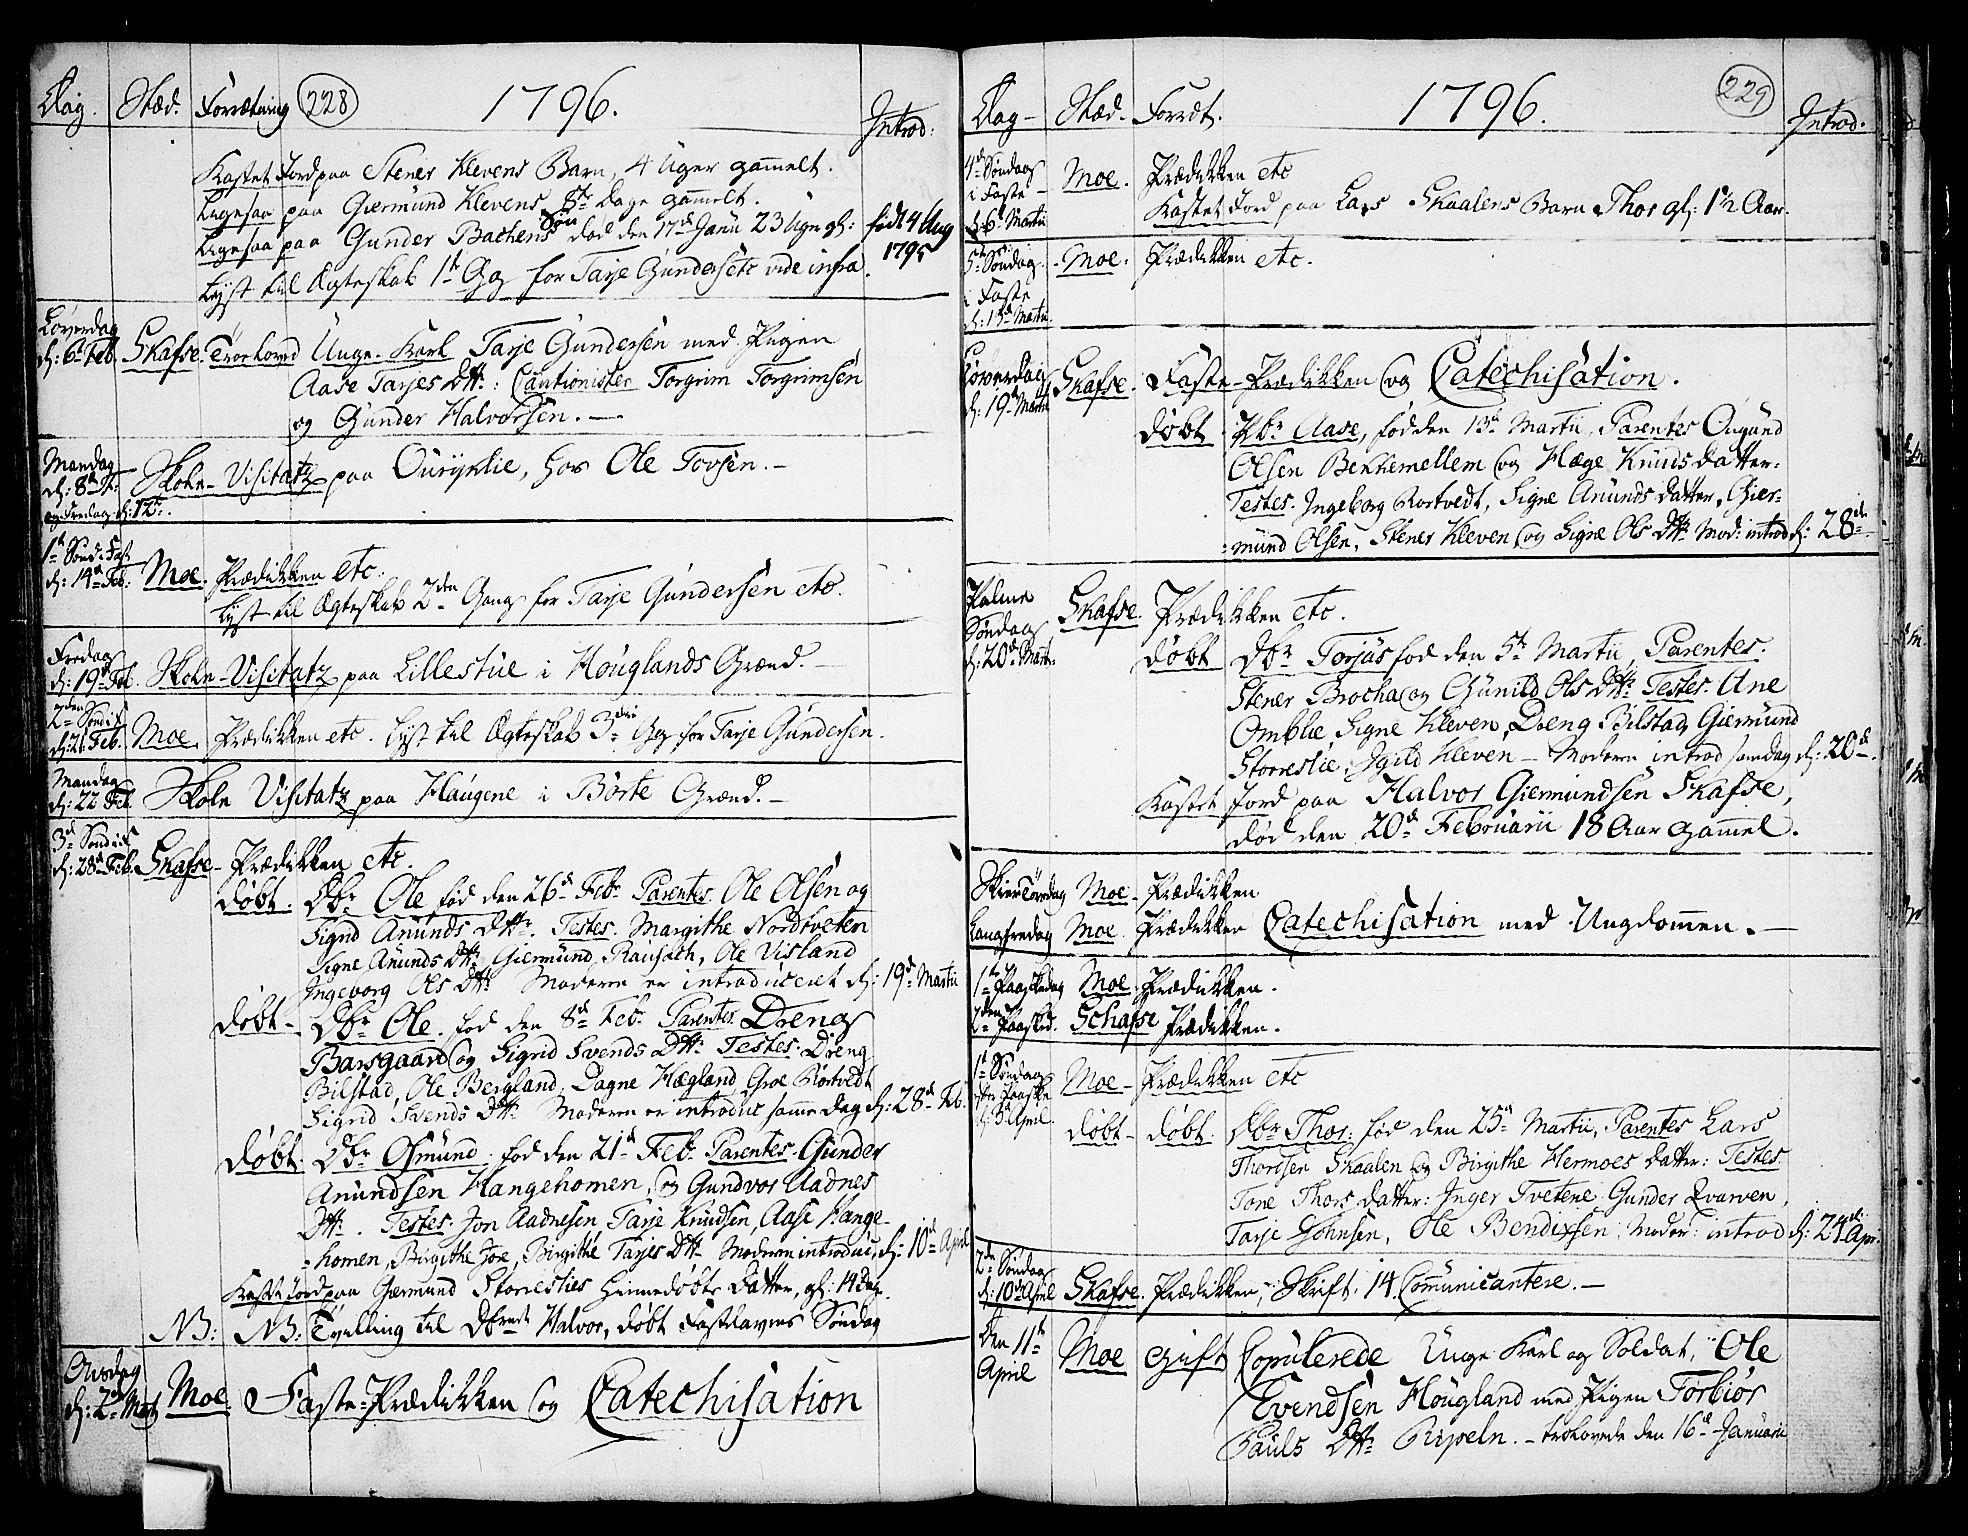 Dag. Stæd. Forrætning 228 1796. Introd:
Kastet Jord paa Stener Klevens Barn, 4 Uger gammelt.
Ligesaa paa Giermund Klevens 8te Dage gammelt.
Ligesaa paa Gunder Bachens Søn død den 17de Janu 23 Uger gl: født 4 Aug 1795
Lyst til Ægteskab 1te Gg for Tarje Gundersen etc vide infra.
Løverdag
d: 6te Feb. Skafse. Troelowed Unge-Karl Tarje Gundersen med Pigen
Aase Tarjes Dttr: Cautionister Torgrim Torgrimsen
og Gunder Halvorsen. —
Mandag
d: 8de
og Fredag d: 12te. Skole-Visitatz paa Ouryklie, hos Ole Tovsen. —
1te Sønd: i Fast
d: 14de Feb: Moe. Prædikken etc.
Lyst til Ægteskab 2den Gang for Tarje Gundersen etc.
Fredag
d: 19de Feb. Skole-Visitatz paa Lillestue i Houglands Grænd. —
2den Sønd i F
d: 21 Feb. Moe. Prædikken etc. Lyst til Ægteskab 3die Gg for Tarje Gundersen.
Mandag
d: 22 Feb. Skole Visitatz paa Haugene i Børte Grænd. —
3de Sønd i F
d: 28de Feb. Skafse - Prædikken etc.
døbt. Dbr Ole fød den 26de Febr Parentes Ole Olsen og
Signd Anunds Dttr. Testes. Margithe Nordtveten
Signe Anunds Dttr Giermund Ole Visland
Ingeborg Ols Dttr Moderen er introduceret d: 19de Martii
døbt - Dbr Ole. fød den 8de Febr Parentes Dreng
Barsgaard og Sigrid Svends Dttr Testes. Dreng
Bilstad, Ole Bergland, Dagne Hægland, Groe Rortvedt
Sigrid Svends Dttr Moderen er introduc samme dag d: 28de Feb.
døbt. Dbr Osmund. fød den 21de Feb. Parentes. Gunder
Anundsen Hangehomen, og Gundvor Aadnes
Dttr. Testes. Jon Aadnesen, Tarje Knudsen, Aase Hange-
=homen, Birgithe Joe, Birgithe Tarjes Dttr Moderen introduc, d: 10de April
Kastet Jord paa Giermund Storresties hiemedøbte Datter, gl: 14 Dage.
NB: NB: Tvilling til Halvor, døbt Fastelavns Søndag
Onsdag
d: 2den Mart Moe. Faste-Prædikken og Catechisation
Dag - Stæd. Forrdt. 1796. 229 Introd.
4de Søndag
i Faste
d: 6te Martii Moe. Prædikken etc
Kastet Jord paa Lars Skaalens Barn Thor gl: 1 1/2 Aar.
5te Søndag
i Faste
d: 13de Martii. Moe. Prædikken etc.
Løverdag
d: 19de Martii Skafse. Faste-Prædikken og Catechisation.
døbt. Pbr Aase, fød den 13de Martii, Parentes Ougund
Olsen Bekhemellem og Hæge Knuds datter:
Testes. Ingeborg Rortvedt, Signe Anunds datter, Gier-
=mund Olsen, Stener Kleven og Signe Ols Dttr Mod: introd d: 28de
Palme
Søndag
d: 20de Mart: Skafse. Prædikken etc.
døbt Dbr Torjus fød den 5te Martii, Parentes.
Stener Brocha og Gunild Ols Dttr Testes. Ane
Omblie Signe Kleven, Dreng Bilstad, Giermund
Storreslie, Egild Kleven — Moderen introd samdag d: 20de.
Kastet Jord paa Halvor Giermundsen Skafse,
død den 20de Februarii 18 Aar gammel.
Skiertorsdag Moe - Prædikken
Langfredag Moe. Prædikken Catechisation med Ungdommen. —
1te Paaskedag Moe. Prædikken.
2den Paasked. Schafse Prædikken.
1te Søndag
efter Paaske
d: 3de April. Moe - Prædikken etc
døbt - døbt. Dbr Thor: fød den 25de Martii, Parentes Lars
Thorsen Skaalen og Birgithe Hermoes datter: Testes.
Tone Thors datter: Inger Tvetene Gunder Qvarven,
Tarje Johnsen, Ole Bendixsen, Moder: introd d: 24de Apr.
2den Søndag
d: 10de April Skafse. Prædikken, Skrift. 14 Communicantere. —
Den 11te
April Moe Gift Copulerede Unge Karl og Soldat, Ole
Evendsen Hougland med Pigen Torbiør
Pauls Dttr Ripeln. — trolovede den 16de Januarii